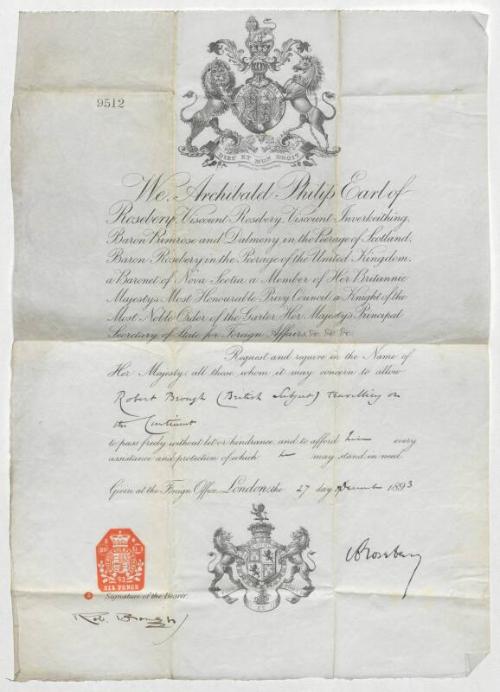 9512
DIEU ET MON DROIT
We, Archibald Philip Earl of
Rosebery, Viscount Rosebery, Viscount Inverkeithing,
Baron Primrose and Dalmeny, in the Peerage of Scotland,
Baron Rosebery in the Peerage of the United Kingdom,
a Baronet of Nova Scotia, a Member of Her Britannic
Majesty's Most Honourable Privy Council, a Knight of the
Most Noble Order of the Garter, Her Majesty's Principal
Secretary of State for Foreign Affairs, &c. &c. &c.
Request and require in the Name of
Her Majesty, all those whom it may concern to allow
Robert Brough (British Subject) travelling on
the Continent
to pass freely without let or hindrance, and to afford him every
assistance and protection of which he may stand in need.
Given at the Foreign Office, London, the 27 day of December 1893
Rosebery
93
SIX PENCE
Signature of the Bearer.
Rob. Brough